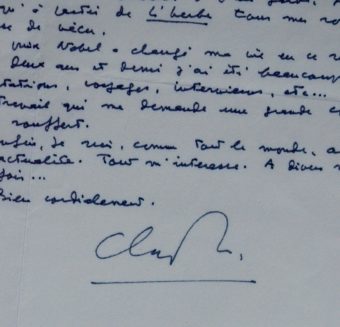 qu'à partir de l'herbe tous mes ro
se de vécu.
prix Nobel a changé ma vie en ce s
Deux ans et demi j'ai été beaucoup
tations, voyages, interviews, etc...
travail qui me demande une grande c
souffert.
enfin, je suis, comme tout le monde, a
actualité. Tout m'intéresse. A divers
fois...
Bien cordialement.